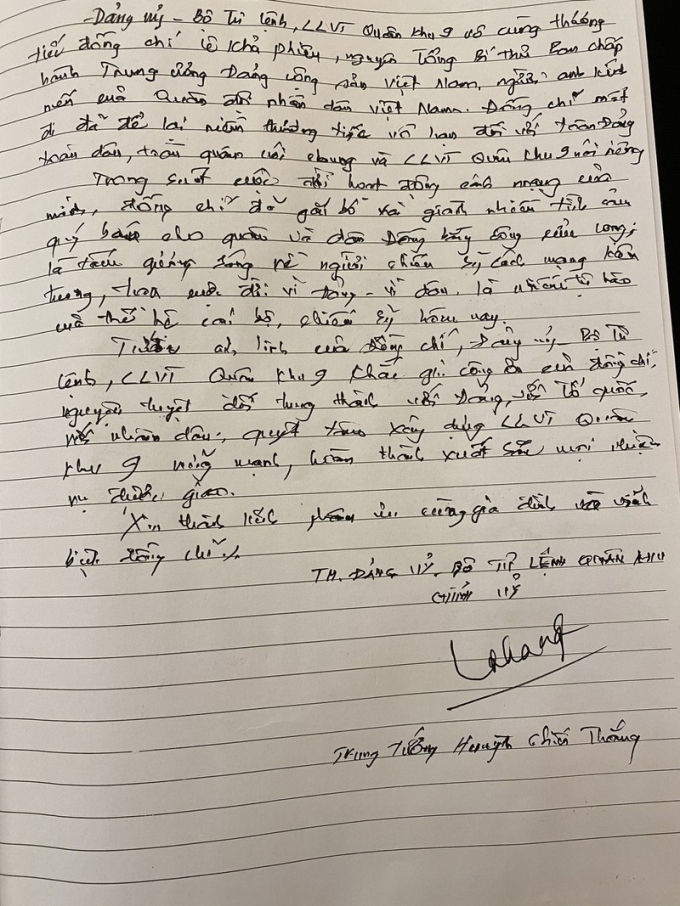 - Đảng ủy - Bộ Tư lệnh, LLVT Quân khu 9 vô cùng thương
tiếc đồng chí Lê Khả Phiêu, nguyên Tổng Bí thư Ban chấp
hành Trung ương Đảng cộng sản Việt Nam, người anh kính
mến của Quân đội nhân dân Việt Nam. Đồng chí mất
đi đã để lại niềm thương tiếc vô hạn đối với toàn Đảng
toàn dân, toàn quân nói chung và LLVT Quân khu 9 nói riêng
Trong suốt cuộc đời hoạt động cách mạng của
mình, đồng chí đã gắn bó và giành nhiều tình cảm
quý báu cho quân và dân Đồng bằng sông cửu long;
là tấm gương sáng về người chiến sỹ cách mạng kiên
trung, cuộc đời vì Đảng - vì dân. là niềm tự hào
của thế hệ cán bộ, chiến sỹ hôm nay.
Trước anh linh của đồng chí, Đảng ủy - Bộ Tư
lệnh, LLVT Quân khu 9 khắc ghi công ơn của đồng chí,
nguyện tuyệt đối trung thành với Đảng, với Tổ quốc,
với nhân dân; quyết tâm xây dựng LLVT Quân
khu 9 vững mạnh, hoàn thành xuất sắc mọi nhiệm
vụ được giao.
Xin thành kính phân ưu cùng gia đình và vĩnh
biệt đồng chí./.
TM. ĐẢNG UỶ. BỘ TƯ LỆNH QUÂN KHU
CHÍNH UỶ
Trung tướng Huỳnh Chiến Thắng